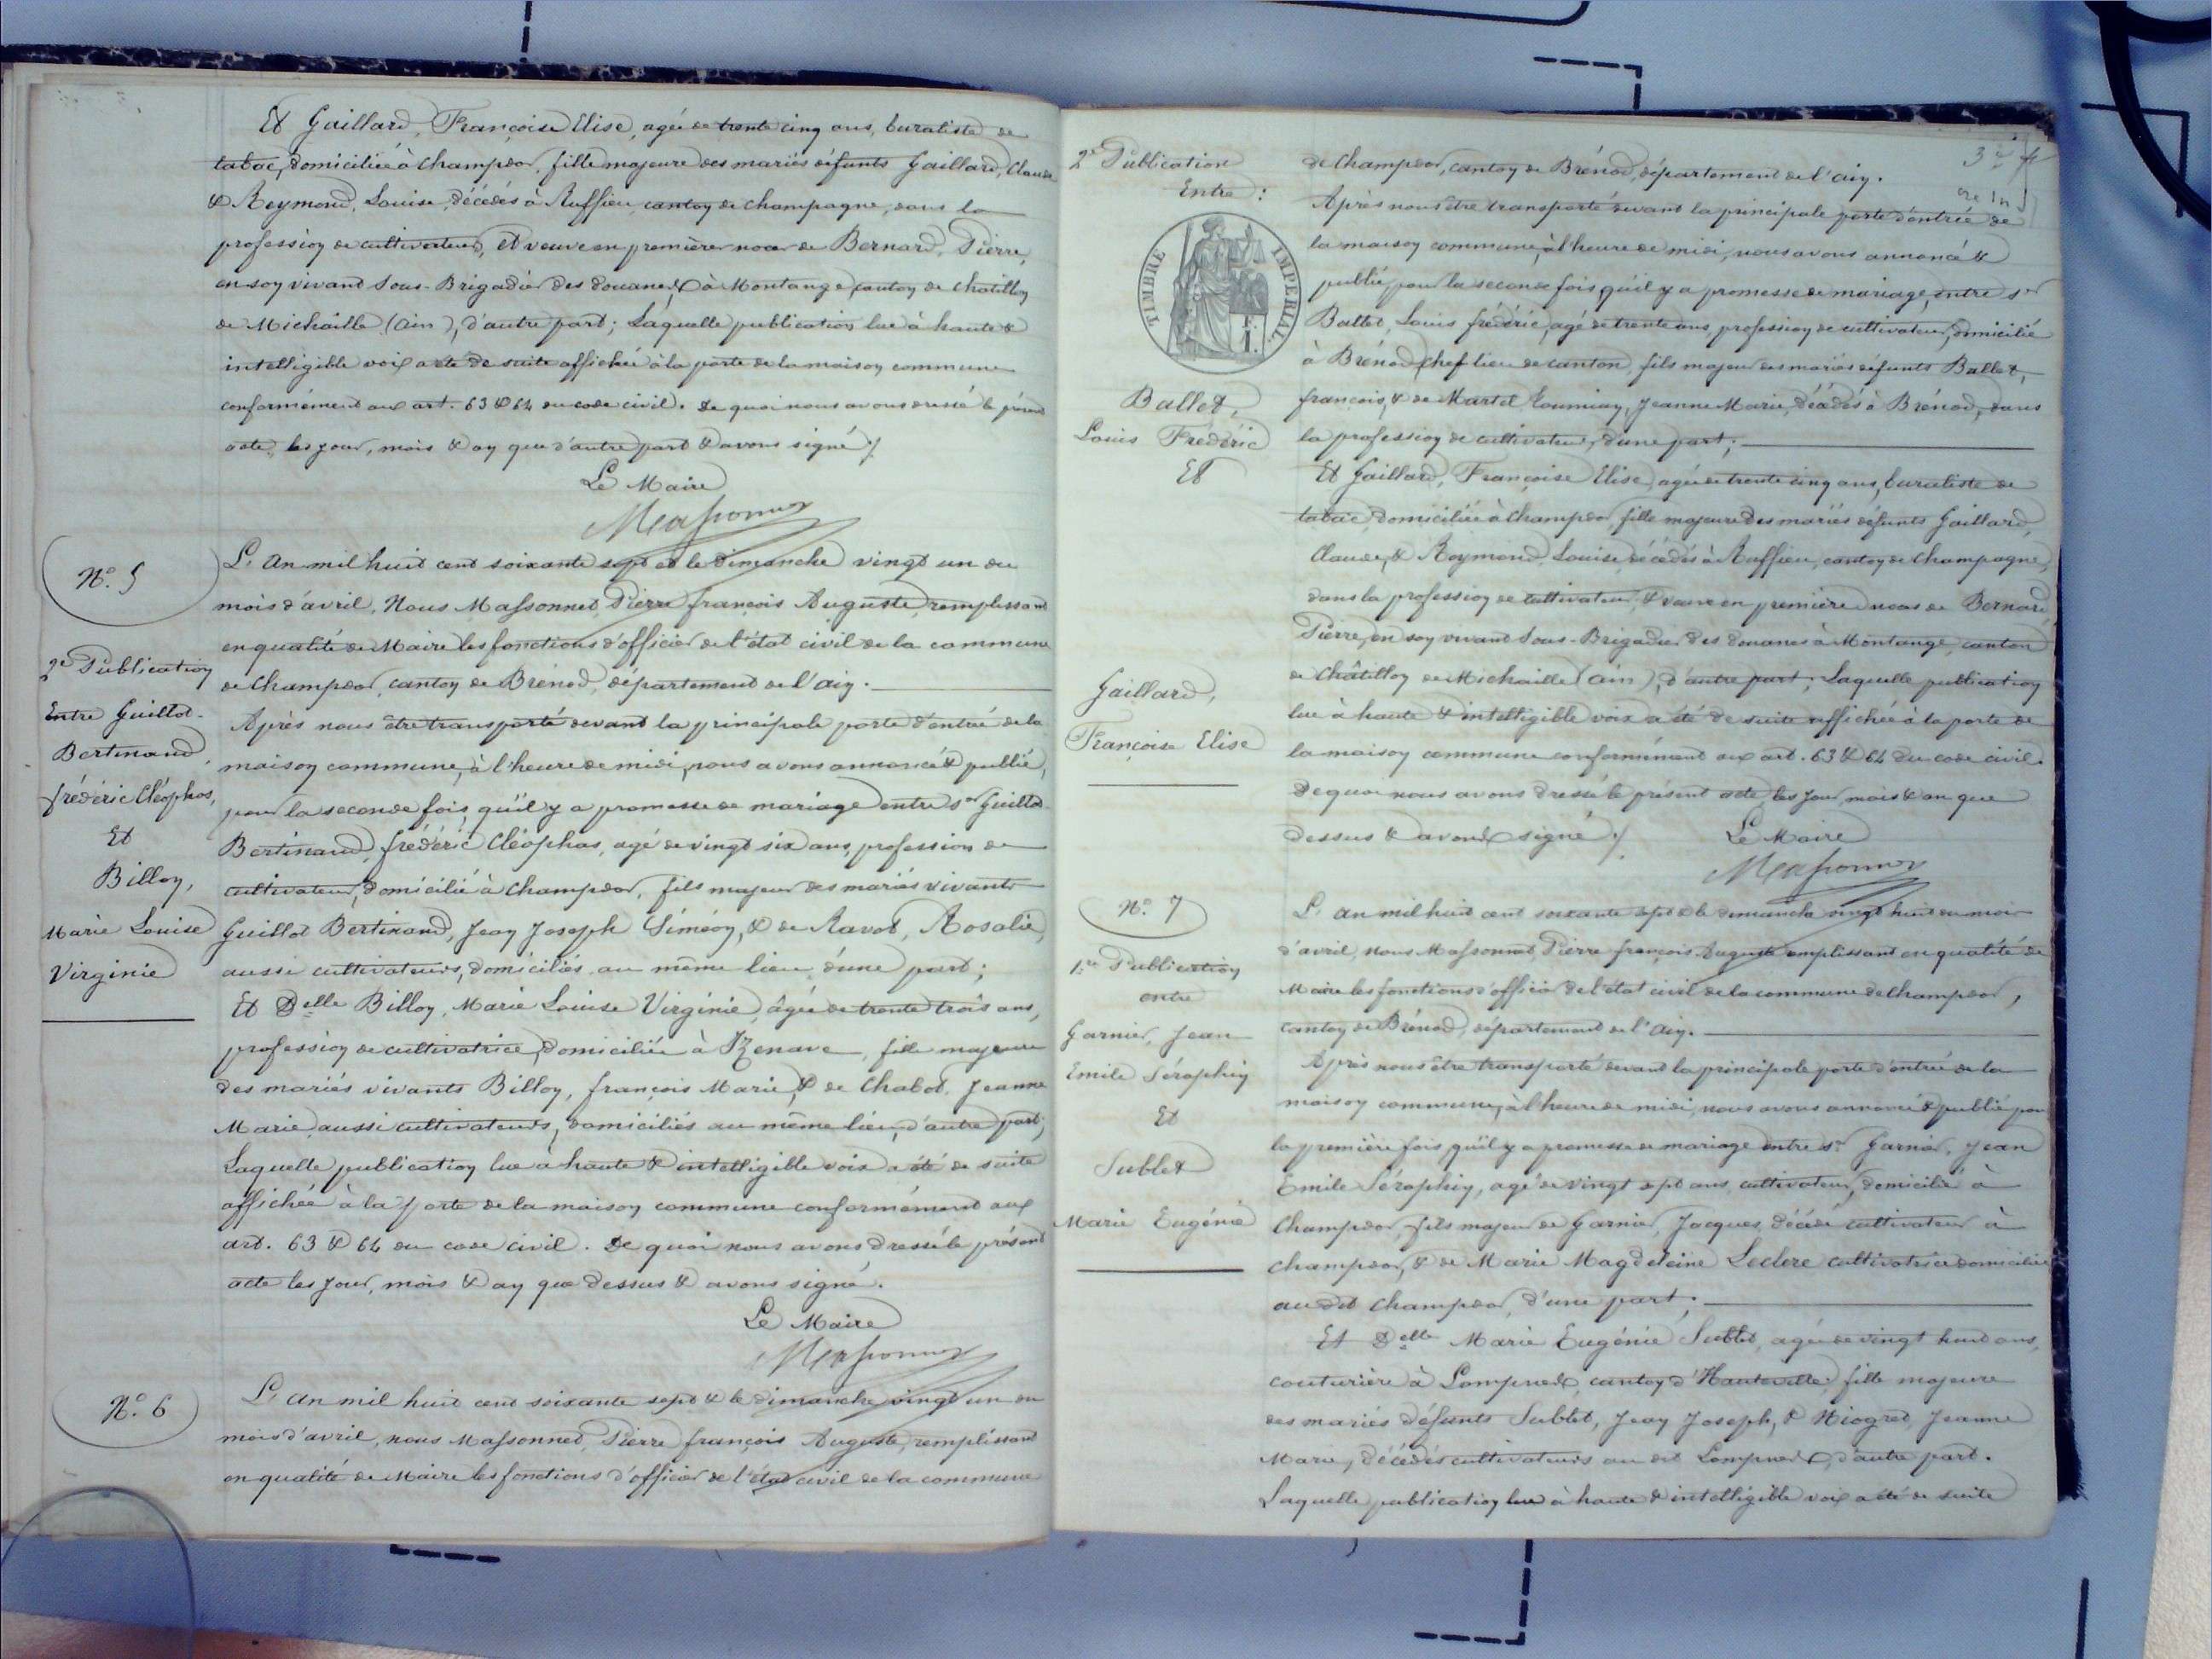 Et Gaillard, Françoise Elise, agée de trente cinq ans, buraliste de
tabac, domiciliée à Champdor, fille majeure des mariés défunts Gaillard, Claude
& Reymond, Louise, décédés à Ruffieu, canton de Champagne, dans la
profession de cultivateurs, et veuve en premières noces de Bernard, Pierre,
en son vivant Sous-Brigadier des douanes à Montange, canton de Chatillon
de Michaille (Ain), d'autre part; Laquelle publication lue à haute &
intelligible voix a été de suite affichée à la porte de la maison commune
conformément aux art. 63 & 64 du code civil. De quoi nous avons dressé le présent
acte, les jour, mois & an que d'autre part & avons signé /.
Le Maire
Massonnet
N° 5
L'an mil huit cent soixante sept et le dimanche vingt un du
mois d'avril, Nous Massonnet, Pierre françois Auguste, remplissant
en qualité de Maire les fonctions d'officier de l'état civil de la commune
de Champdor, canton de Brénod, département de l'Ain.
2e Publication
Entre Guillot-
Bertinand,
frédéric Cléophas,
Et
Billon,
Marie Louise
Virginie
Après nous être transporté devant la principale porte d'entrée de la
maison commune, à l'heure de midi, nous avons annoncé & publié,
pour la seconde fois, qu'il y a promesse de mariage entre sr Guillot
Bertinand, frédéric Cléophas, agé de vingt six ans, profession de
cultivateur, domicilié à Champdor, fils majeur des mariés vivants
Guillot Bertinand, Jean Joseph Siméon, & de Ravot, Rosalie,
aussi cultivateurs, domiciliés au même lieu, d'une part;
Et Delle Billon, Marie Louise Virginie, âgée de trente trois ans,
profession de cultivatrice, domiciliée à Izenave, fille majeure
des mariés vivants Billon, françois Marie, & de Chabot, Jeanne
Marie, aussi cultivateurs, domiciliés au même lieu, d'autre part;
Laquelle publication lue à haute & intelligible voix a été de suite
affichée à la porte de la maison commune conformément aux
art. 63 & 64 du code civil. De quoi nous avons dressé le présent
acte les jour, mois & an que dessus & avons signé.
Le Maire
Massonnet
N° 6
L'an mil huit cent soixante sept & le dimanche vingt un du
mois d'avril, nous Massonnet, Pierre françois Auguste, remplissant
en qualité de Maire les fonctions d'officier de l'état civil de la commune
2e Publication
Entre :
TIMBRE IMPERIAL
Ballet,
Louis Frédéric
Et
Gaillard,
Françoise Elise
de Champdor, canton de Brénod, département de l'Ain.
Après nous être transporté devant la principale porte d'entrée de
la maison commune, à l'heure de midi, nous avons annoncé &
publié, pour la seconde fois qu'il y a promesse de mariage, entre sr
Ballet, Louis frédéric, agé de trente ans, profession de cultivateur, domicilié
à Brénod, chef lieu de canton, fils majeur des mariés défunts Ballet,
francois, & de Martel Jeanne Marie, décédés à Brénod, dans
la profession de cultivateurs, d'une part;
Et Gaillard, Françoise Elise, agée de trente cinq ans, buraliste de
tabac, domiciliée à Champdor, fille majeure des mariés défunts Gaillard,
Claude, & Reymond, Louise, décédés à Ruffieu, canton de Champagne,
dans la profession de cultivateurs, & veuve en premières noces de Bernard,
Pierre, en son vivant Sous-Brigadier des douanes à Montange, canton
de Châtillon de Michaille (Ain), d'autre part; Laquelle publication
lue à haute & intelligible voix a été de suite affichée à la porte de
la maison commune conformément aux art. 63 & 64 du code civil.
De quoi nous avons dressé le présent acte, les jour, mois & an que
dessus & avons signé /.
Le Maire
Massonnet
N° 7
1re Publication
entre
Garnier, Jean
Emile Séraphin
Et
Sublet
Marie Eugénie
L'an mil huit cent soixante sept & le dimanche vingt huit du mois
d'avril, nous Massonnet, Pierre françois Auguste remplissant en qualité de
Maire les fonctions d'officier de l'état civil de la commune de Champdor,
canton de Brénod, département de l'Ain.
Après nous être transporté devant la principale porte d'entrée de la
maison commune, à l'heure de midi, nous avons annoncé & publié pour
la première fois, qu'il y a promesse de mariage entre sr Garnier, Jean
Emile Séraphin, agé de vingt sept ans, cultivateur, domicilié à
Champdor, fils majeur de Garnier, Jacques, décédé cultivateur à
champdor, & de Marie Magdeleine Leclerc cultivatrice domiciliée
au dit Champdor, d'une part;
Et Delle Marie Eugénie Sublet, agée de vingt huit ans,
couturière à Lompnes, canton d'Hauteville, fille majeure
des mariés défunts Sublet, Jean Joseph, & Niogret, Jeanne
Marie, décédés cultivateurs au dit Lompnes, d'autre part.
Laquelle publication lue à haute & intelligible voix a été de suite